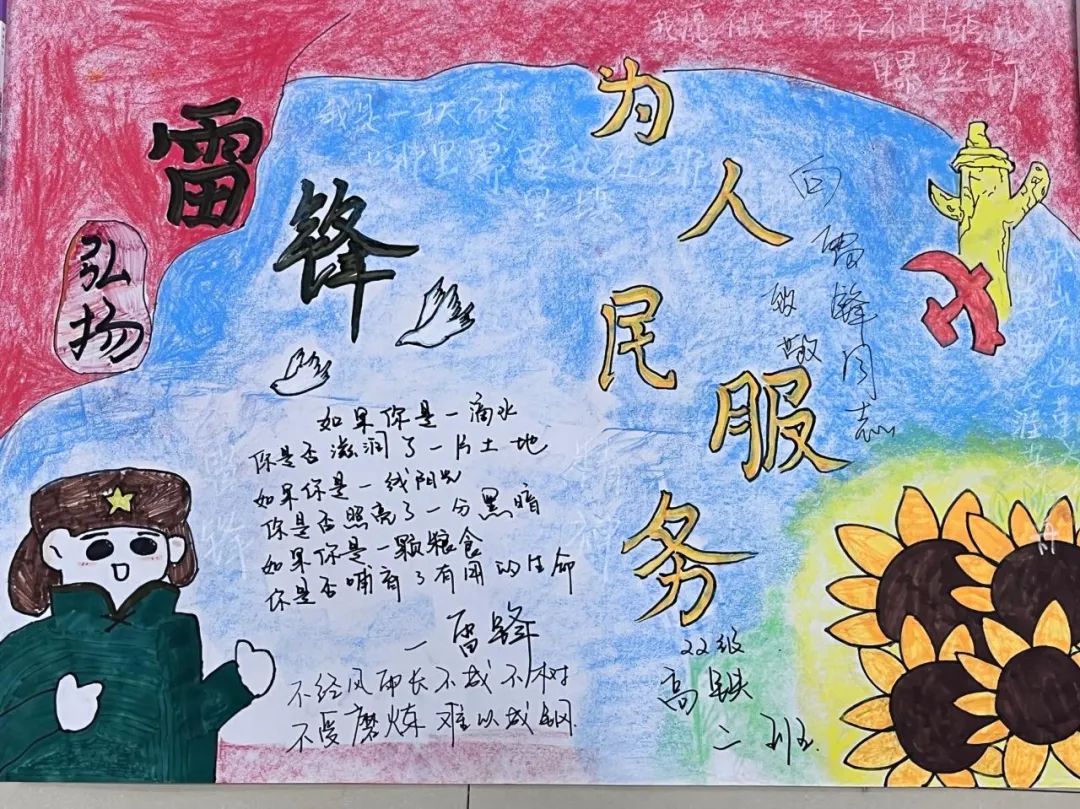 我愿做一颗永不生锈的
螺丝钉
雷锋
弘扬
为人民服务
我是一块砖
向雷锋同志
致敬
如果你是一滴水
你是否滋润了一片土地
如果你是一线阳光
你是否照亮了一分黑暗
如果你是一颗粮食
你是否哺育了有用的生命
—雷锋
不经风雨长不成树
不受磨炼难以成钢
22级
高铁
二班